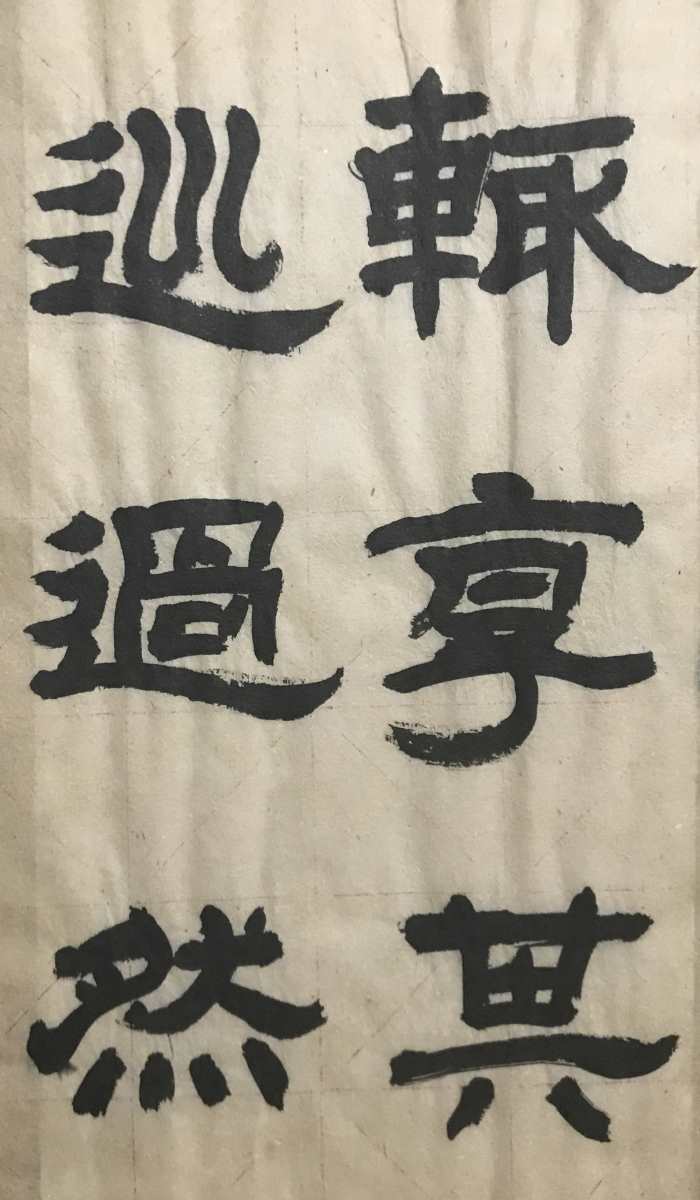 輙享其
巡過然